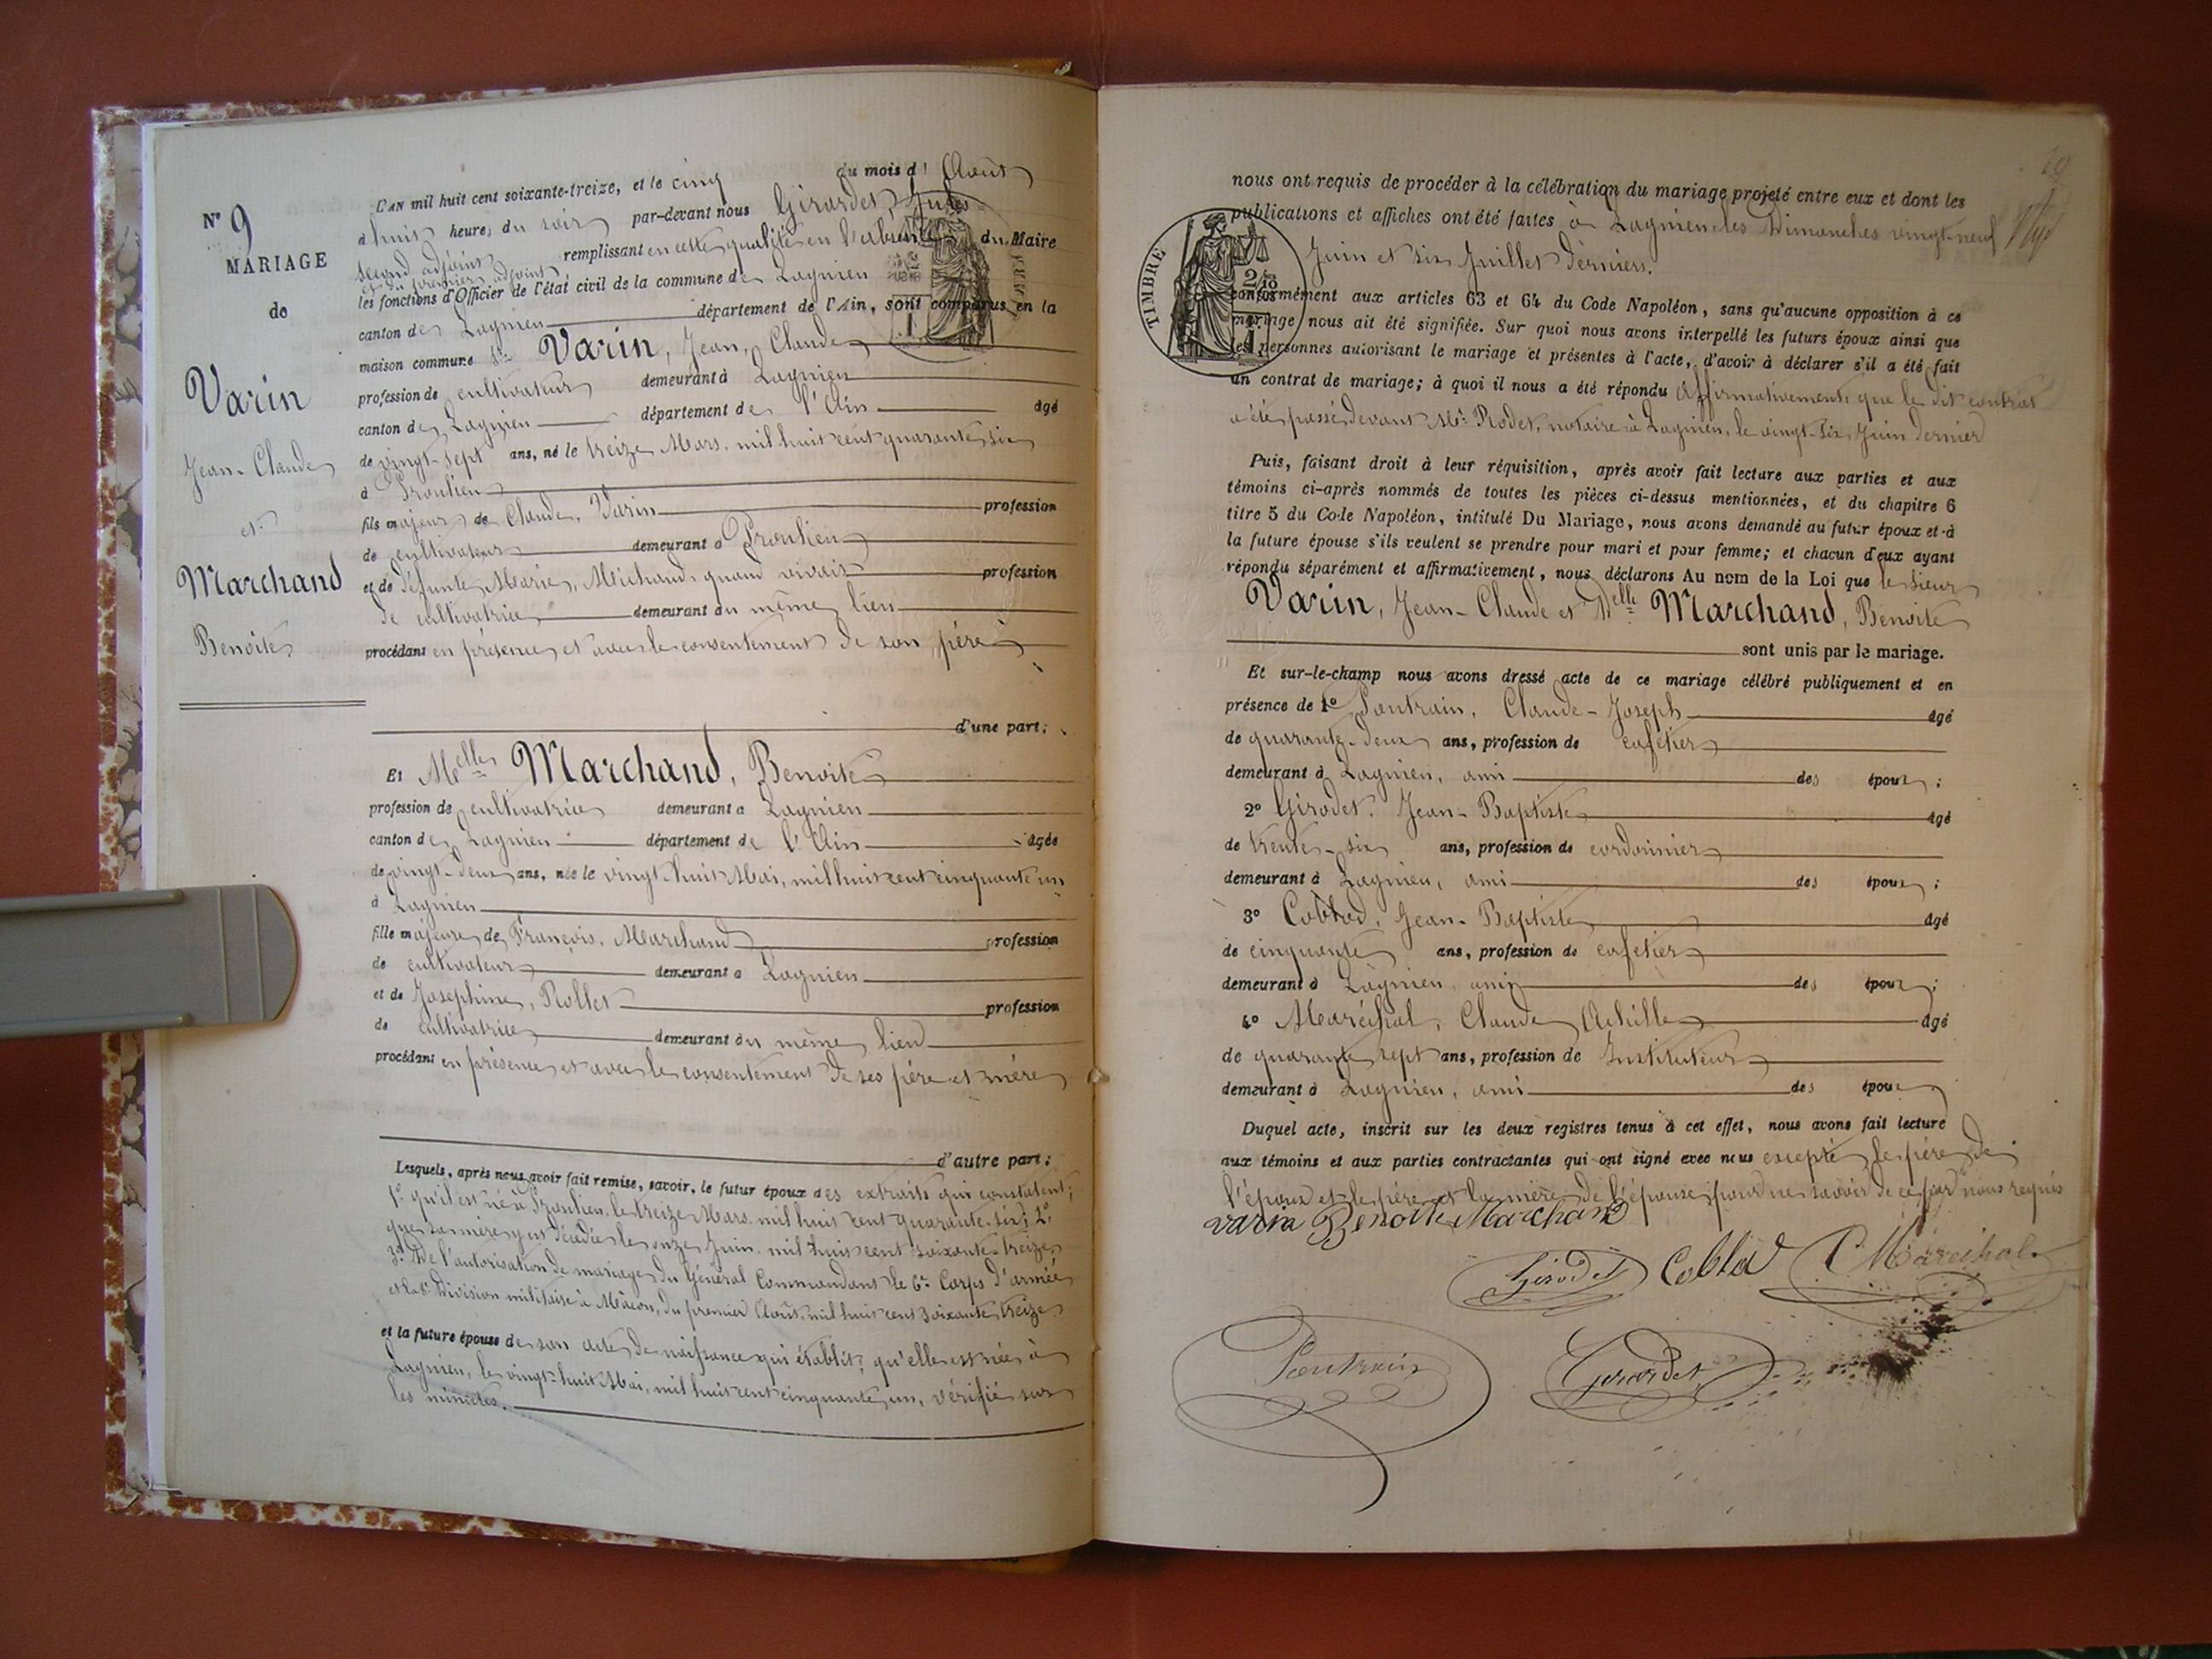 N° 9
MARIAGE
de
Varin
Jean-Claude
et
Marchand
Benoite
L'AN mil huit cent soixante-treize, et le cinq du mois d' Août
à huit heures du soir par-devant nous Girardet, Jules
second adjoint remplissant en cette qualité en l'absence du Maire
et du premier adjoint
les fonctions d'Officier de l'état civil de la commune de Lagnieu
canton de Lagnieu département de l'Ain, sont comparus en la
maison commune Sr Varin, Jean, Claude
profession de cultivateur demeurant à Lagnieu
canton de Lagnieu département de l'Ain âgé
de vingt-sept ans, né le treize Mars, mil huit cent quarante six
à Proulieu
fils majeur de Claude, Varin profession
de cultivateur demeurant à Proulieu
et de défunte Marie, Michaud, quand vivait profession
de cultivatrice demeurant au même lieu
procédant en présence et avec le consentement de son père
d'une part;
Et Melle Marchand, Benoite
profession de cultivatrice demeurant à Lagnieu
canton de Lagnieu département de l'Ain âgée
de vingt-deux ans, née le vingt-huit Mai, mil huit cent cinquante un
à Lagnieu
fille majeure de François, Marchand profession
de cultivateur demeurant à Lagnieu
et de Josephine, Rollet profession
de cultivatrice demeurant au même lieu
procédant en présence et avec le consentement de ses père et mère
d'autre part;
Lesquels, après nous avoir fait remise, savoir, le futur époux des extraits qui constatent;
1° qu'il est né à Proulieu, le treize Mars, mil huit cent quarante-six; 2°
que sa mère y est décédée le onze Juin, mil huit cent soixante-treize
3° De l'autorisation de mariage du Général Commandant le 6e Corps d'armée
et la 8e Division militaire à Mâcon, du premier Août, mil huit cent soixante treize
et la future épouse de son acte de naissance qui établit, qu'elle est née à
Lagnieu, le vingt-huit Mai, mil huit cent cinquante un, vérifié sur
les minutes.
nous ont requis de procéder à la célébration du mariage projeté entre eux et dont les
publications et affiches ont été faites à Lagnieu les Dimanches vingt-neuf
Juin et six Juillet derniers.
TIMBRE
conformément aux articles 63 et 64 du Code Napoléon, sans qu'aucune opposition à ce
mariage nous ait été signifiée. Sur quoi nous avons interpellé les futurs époux ainsi que
les personnes autorisant le mariage et présentes à l'acte, d'avoir à déclarer s'il a été fait
un contrat de mariage; à quoi il nous a été répondu affirmativement, que le dit contrat
a été passé devant Me Rodet, notaire à Lagnieu, le vingt-six Juin dernier
Puis, faisant droit à leur réquisition, après avoir fait lecture aux parties et aux
témoins ci-après nommés de toutes les pièces ci-dessus mentionnées, et du chapitre 6
titre 5 du Code Napoléon, intitulé Du Mariage, nous avons demandé au futur époux et à
la future épouse s'ils veulent se prendre pour mari et pour femme; et chacun d'eux ayant
répondu séparément et affirmativement, nous déclarons Au nom de la Loi que le Sieur
Varin, Jean-Claude et Melle Marchand, Benoite
sont unis par le mariage.
Et sur-le-champ nous avons dressé acte de ce mariage célébré publiquement et en
présence de 1° Pontrain, Claude-Joseph âgé
de quarante-deux ans, profession de cafetier
demeurant à Lagnieu, ami des époux;
2° Girodet, Jean-Baptiste âgé
de trente-six ans, profession de cordonnier
demeurant à Lagnieu, ami des époux;
3° Coblod, Jean-Baptiste âgé
de cinquante ans, profession de cafetier
demeurant à Lagnieu, ami des époux;
4° Maréchal, Claude Achille âgé
de quarante sept ans, profession de Instituteur
demeurant à Lagnieu, ami des époux
Duquel acte, inscrit sur les deux registres tenus à cet effet, nous avons fait lecture
aux témoins et aux parties contractantes qui ont signé avec nous excepté le père de
l'époux et le père et la mère de l'épouse pour ne savoir de ce par nous requis
varin Benoite Marchand
Girodet Coblod Maréchal
Pontrain Girardet